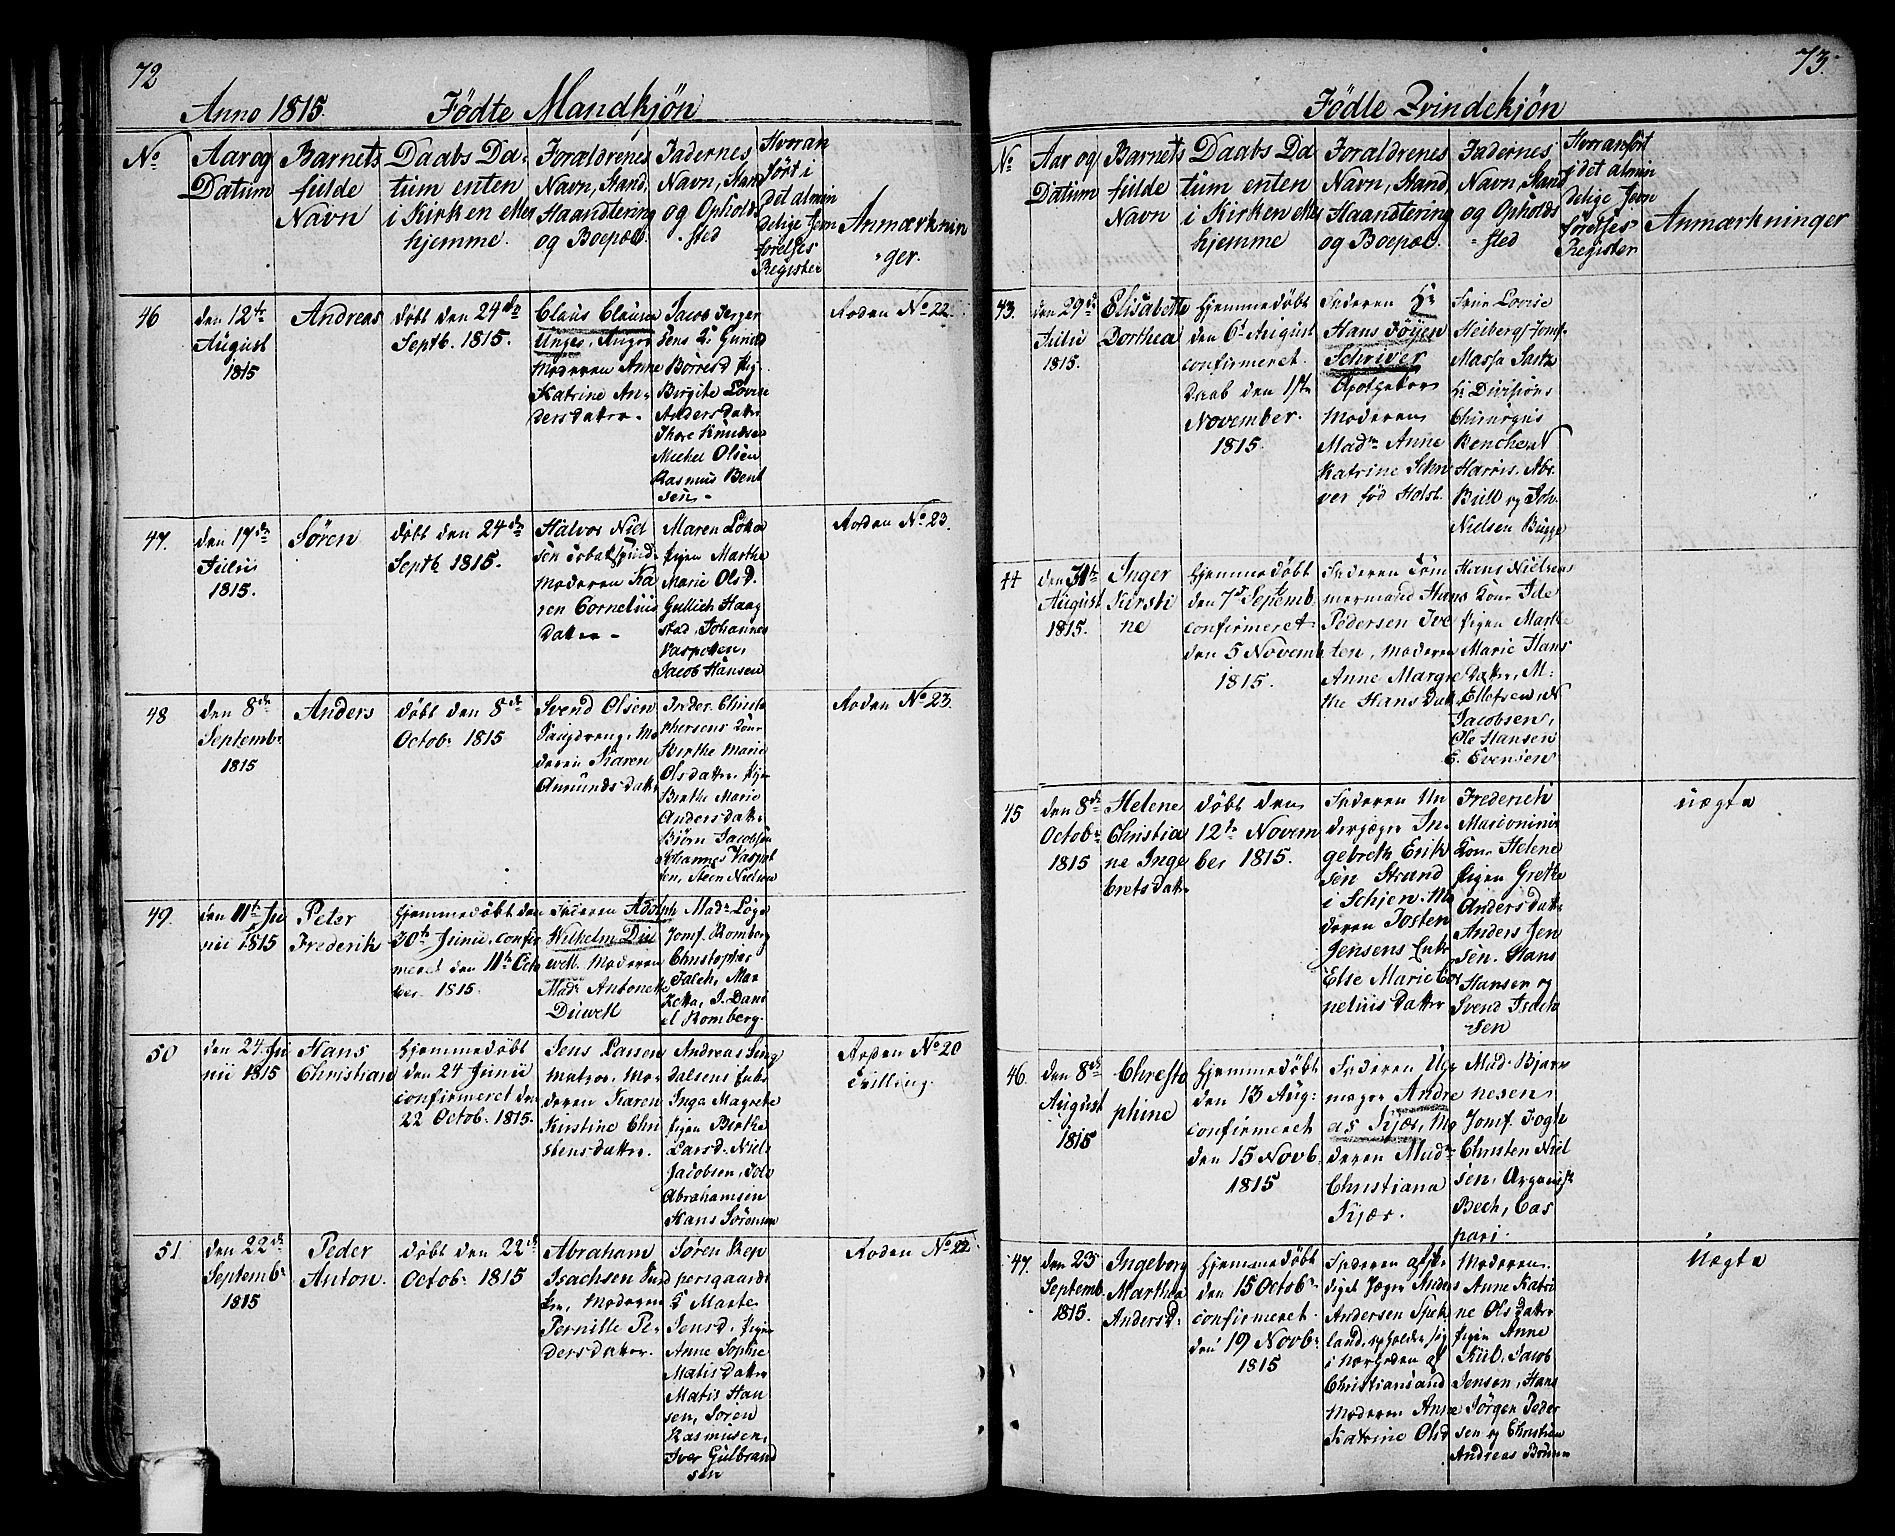 72
Anno 1815. Fødte Mandkjøn
No
Aar og
Datum
Barnets
fulde
Navn
Daabs Da-
tum enten
i Kirken eller
hjemme.
Forældrenes
Navn, Stand,
Haandtering
og Boepæl.
Faddernes
Navn, Stand
og Opholds
sted
Hvor an
ført i
det almin
delige Jevn
førelses
Register
Anmærknin
ger.
46
den 12te
August
1815
Andreas
døbt den 24de
Septb. 1815.
Claus Clausen
Unges,
Moderen Anne
Katrine An-
dersdatter.
Jacob
Birgite Lovise
Andersdatr
Thore Knudsen
Michel Olsen
Rasmus Bent
sen.
Aorden No 22.
47.
den 17de
Julii
1815.
Søren
døbt den 24de
Septb 1815.
Halvor Niel
sen Tobakspind.
Moderen Ka
ren Cornelius
datter
Maren
Pigen Marthe
Marie Olsd.
Gullich Haag
stad, Johannes
Jacob Hansen
Aorden No 23.
48
den 8de
Septembr
1815
Anders
døbt den 8de
Octobr 1815
Svend Olsen
Mo
deren Karen
Amundsdatr
Peder Christo
phersens Kone
Birthe Marie
Olsdatter, Pign
Birthe Marie
Andersdatr
Biørn Jacobsen
Johannes Kaspar
sen, Steen Nielsen
Aorden No 23.
49.
den 11te Ju
nii 1815
Peter
Frederik
hjemmedøbt den
30te Junii, confir
meret den 11te Octo
ber 1815.
Faderen Adolph
Wilhelm Du
well. Moderen
Mad. Antonette
Duwell
Madr
Jomf. Romberg
Christopher
Falch, Mar
J. Dani
el Romberg.
50
den 24. Ju
nii 1815
Hans
Christian
hjemmedøbt
den 24 Junii
confirmeret den
22 Octob. 1815.
Jens Larsen
Matros. Mo-
deren Karen
Kirstine Chri
stensdatter.
Andreas
Inga Magrete
Pigen Birthe
Larsd. Niels
Jacobsen,
Abrahamsen
Hans Sørensen
Aorden No 20
Tvilling.
51
den 22de
Septembr
1815
Peder
Anton.
døbt den 22de
Octobr 1815
Abraham
Isachsen
Moderen
Pernille Pe-
dersdatter.
Søren Rep
persgaards
K Marte
Jensd. Pigen
Anne Sophie
Matisdatter
Matis Han
sen, Søren
Rasmusen,
Iver Gulbrand
sen
Aorden No 22.
73.
Fødte Qvindekjøn
No
Aar og
Datum
Barnets
fulde
Navn
Daabs Da
tum enten
i Kirken eller
hjemme
Forældrenes
Navn, Stand,
Haandtering
og Boepæl.
Faddernes
Navn, Stand
og Opholds
sted
Hvor anført
i det almin
delige Jevn
førelses
Register
Anmærkninger
43.
den 29de
Julii
1815.
Elisabeth
Dorthea
hjemmedøbt
den 6te August
confirmeret
Daab den 1ste
November.
1815.
Faderen Hr
Hans Føyen
Schriver
Apotheker
Moderen
Madm Anne
Katrine Schri
ver fød Holst
Frue Lovise
Heiberg, Jomf.
Hr Divisions
Chirurgus
Harris. Abs.
Bull og Joh.
Nielsen Bugge
44
den 31te
August
1815.
Inger
Kirsti
ne
hjemmedøbt
den 7de Septemb.
confirmeret
den 5 Novemb
1815.
Faderen Tøm
mermand Hans
Pedersen Ive
Moderen
Anne Margre
the Hansdatr
Hans Nielsens
Kone Ide
Pigen Marthe
Marie Hans
Datr, M:
Ellefsen, N
Jacobsen,
Ole Hansen
E. Evensen
45
den 8de
Octobr
1815
Helene
Christia
ne Inge
bretsdatr
døbt den
12te Novem
ber 1815.
Faderen Un
derjæger In-
gebreth Erik
sen Strand
i Schjen. Mo
deren Josten
Jensens Enke
Else Marie Cor
neliisdatter
Frederich
Kone Helene
Pigen Grethe
Andersdatr
Anders Jen
sen. Hans
Hansen og
Svend Isach
sen
uægte
46.
den 8de
August
1815
Christo
phine
hjemmedøbt
den 13 Aug:
confirmeret
den 15 Novb.
1815
Faderen Uhr
mager Andre
as Kjær, Mo
deren Madm
Christiana
Kjær.
Mad. Bjørn
nesen
Jomf. Fogh
Christen Niel
sen, Organist
Bech, Cas
pari.
47.
den 23
Septemb.
1815.
Ingeborg
Marthea
Andersd.
hjemmedøbt
den 15 Octobr
confirmeret
den 19 Novbr
1815
Faderen afske
diget Jæger Anders
Andersen Spek
land, opholder sig
i Nærheden af
Christiansand
Moderen Anne
Katrine Olsd
Moderen
Anne Katri
ne Olsdatter
Pigen Anne
Kiil. Jacob
Jensen, Hans
Jørgen Peder
sen og Christian
Andreas
Uægte